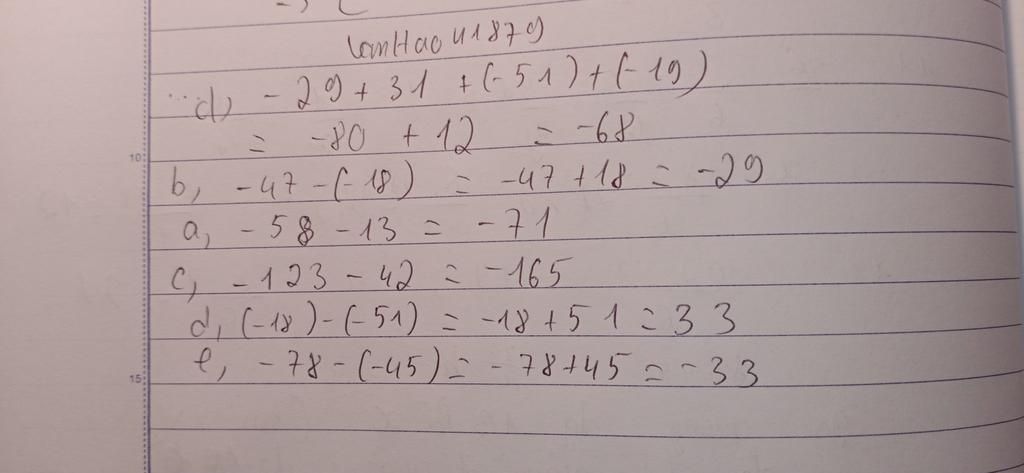 lamHao41879
d, -29+31 +(-51)+(-19)
= -80 + 12 = -68
10
b, -47-(-18) = -47+18 = -29
a, -58-13 = -71
c, -123-42 = -165
d, (-18)-(-51) = -18+51 = 33
e, -78-(-45) = -78+45 = -33
15